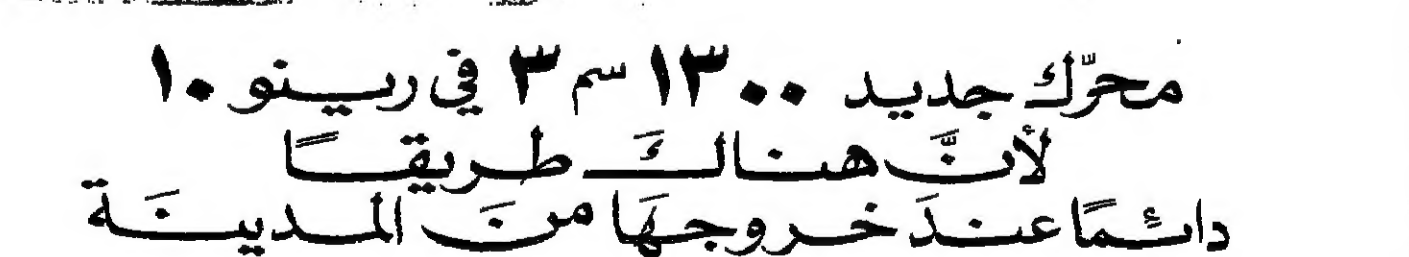 محرّك جديد ١٣٠٠ سم ٣ في رينو ١٠
لأنَّ هناكَ طريقًا
دائمًا عندَ خروجهَا منَ المدينَة